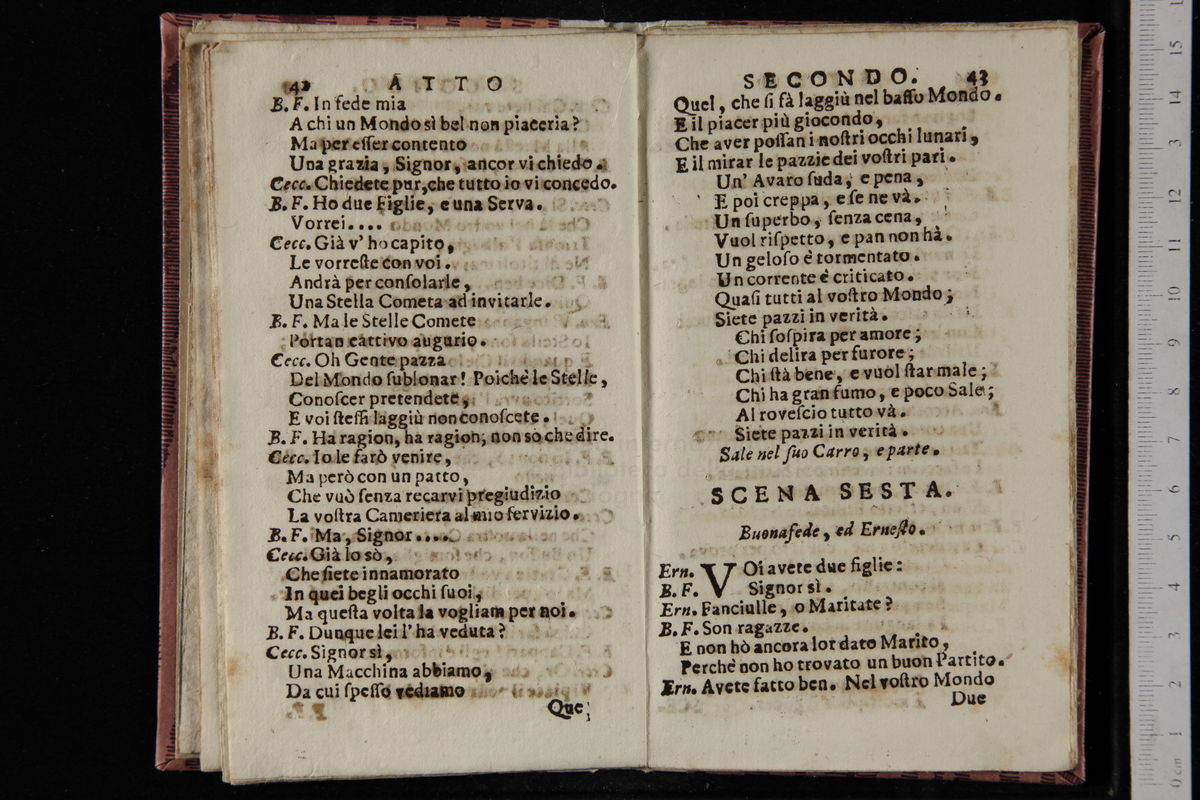 42 ATTO
B. F. In fede mia
A chi un Mondo sì bel non piaceria?
Ma per esser contento
Una grazia, Signor, ancor vi chiedo.
Cecc. Chiedete pur, che tutto io vi concedo.
B. F. Ho due Figlie, e una Serva.
Vorrei....
Cecc. Già v' ho capito,
Le vorreste con voi.
Andrà per consolarle,
Una Stella Cometa ad invitarle.
B. F. Ma le Stelle Comete
Portan cattivo augurio.
Cecc. Oh Gente pazza
Del Mondo sublonar! Poichè le Stelle,
Conoscer pretendete,
E voi stessi laggiù non conoscete.
B. F. Ha ragion, ha ragion; non sò che dire.
Cecc. Io le farò venire,
Ma però con un patto,
Che vuò senza recarvi pregiudizio
La vostra Cameriera al mio servizio.
B. F. Ma, Signor....
Cecc. Già lo sò,
Che siete innamorato
In quei begli occhi suoi,
Ma questa volta la vogliam per noi.
B. F. Dunque lei l' ha veduta?
Cecc. Signor sì,
Una Macchina abbiamo,
Da cui spesso vediamo
Que
SECONDO. 43
Quel, che si fà laggiù nel basso Mondo.
E il piacer più giocondo,
Che aver possan i nostri occhi lunari,
E il mirar le pazzie dei vostri pari.
Un' Avaro suda, e pena,
E poi creppa, e se ne và.
Un superbo, senza cena,
Vuol rispetto, e pan non hà.
Un geloso è tormentato.
Un corrente è criticato.
Quasi tutti al vostro Mondo;
Siete pazzi in verità.
Chi sospira per amore;
Chi delira per furore;
Chi stà bene, e vuol star male;
Chi ha gran fumo, e poco Sale;
Al rovescio tutto và.
Siete pazzi in verità.
Sale nel suo Carro, e parte.
SCENA SESTA.
Buonafede, ed Ernesto.
Ern. VOi avete due figlie:
B. F. Signor sì.
Ern. Fanciulle, o Maritate?
B. F. Son ragazze.
E non hò ancora lor dato Marito,
Perchè non ho trovato un buon Partito.
Ern. Avete fatto ben. Nel vostro Mondo
Due